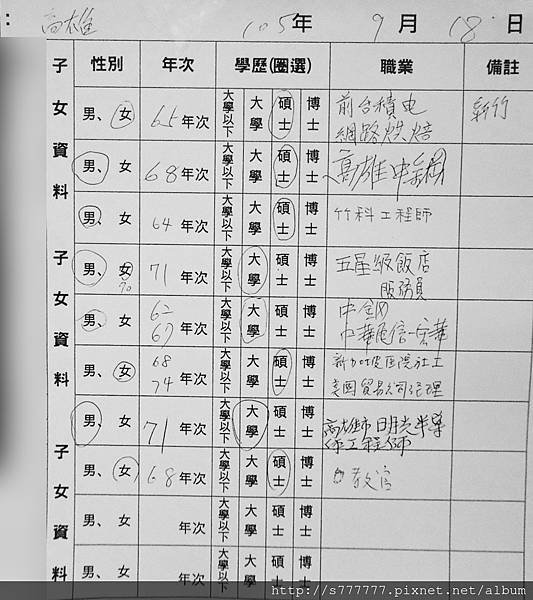 ： 高雄 105年 9月 18日
子女資料 性別 年次 學歷(圈選) 職業 備註
男、女 65年次 大學以下 大學 碩士 博士 前台積电 新竹
網路烘焙
男、女 68年次 大學以下 大學 碩士 博士 高雄中鋼
男、女 64年次 大學以下 大學 碩士 博士 竹科工程師
子女資料
男、女 71年次 大學以下 大學 碩士 博士 五星級飯店
70 服務員
男、女 62 大學以下 大學 碩士 博士 中鋼
67年次 中華電信
男、女 68 大學以下 大學 碩士 博士 新加坡醫院社工
74年次 美國貿易公司經理
男、女 71年次 大學以下 大學 碩士 博士 高雄市日月光半導
体工程師
子女資料
男、女 68年次 大學以下 大學 碩士 博士 教官
男、女 年次 大學以下 大學 碩士 博士
男、女 年次 大學以下 大學 碩士 博士
http://s777777.pixnet.net/album